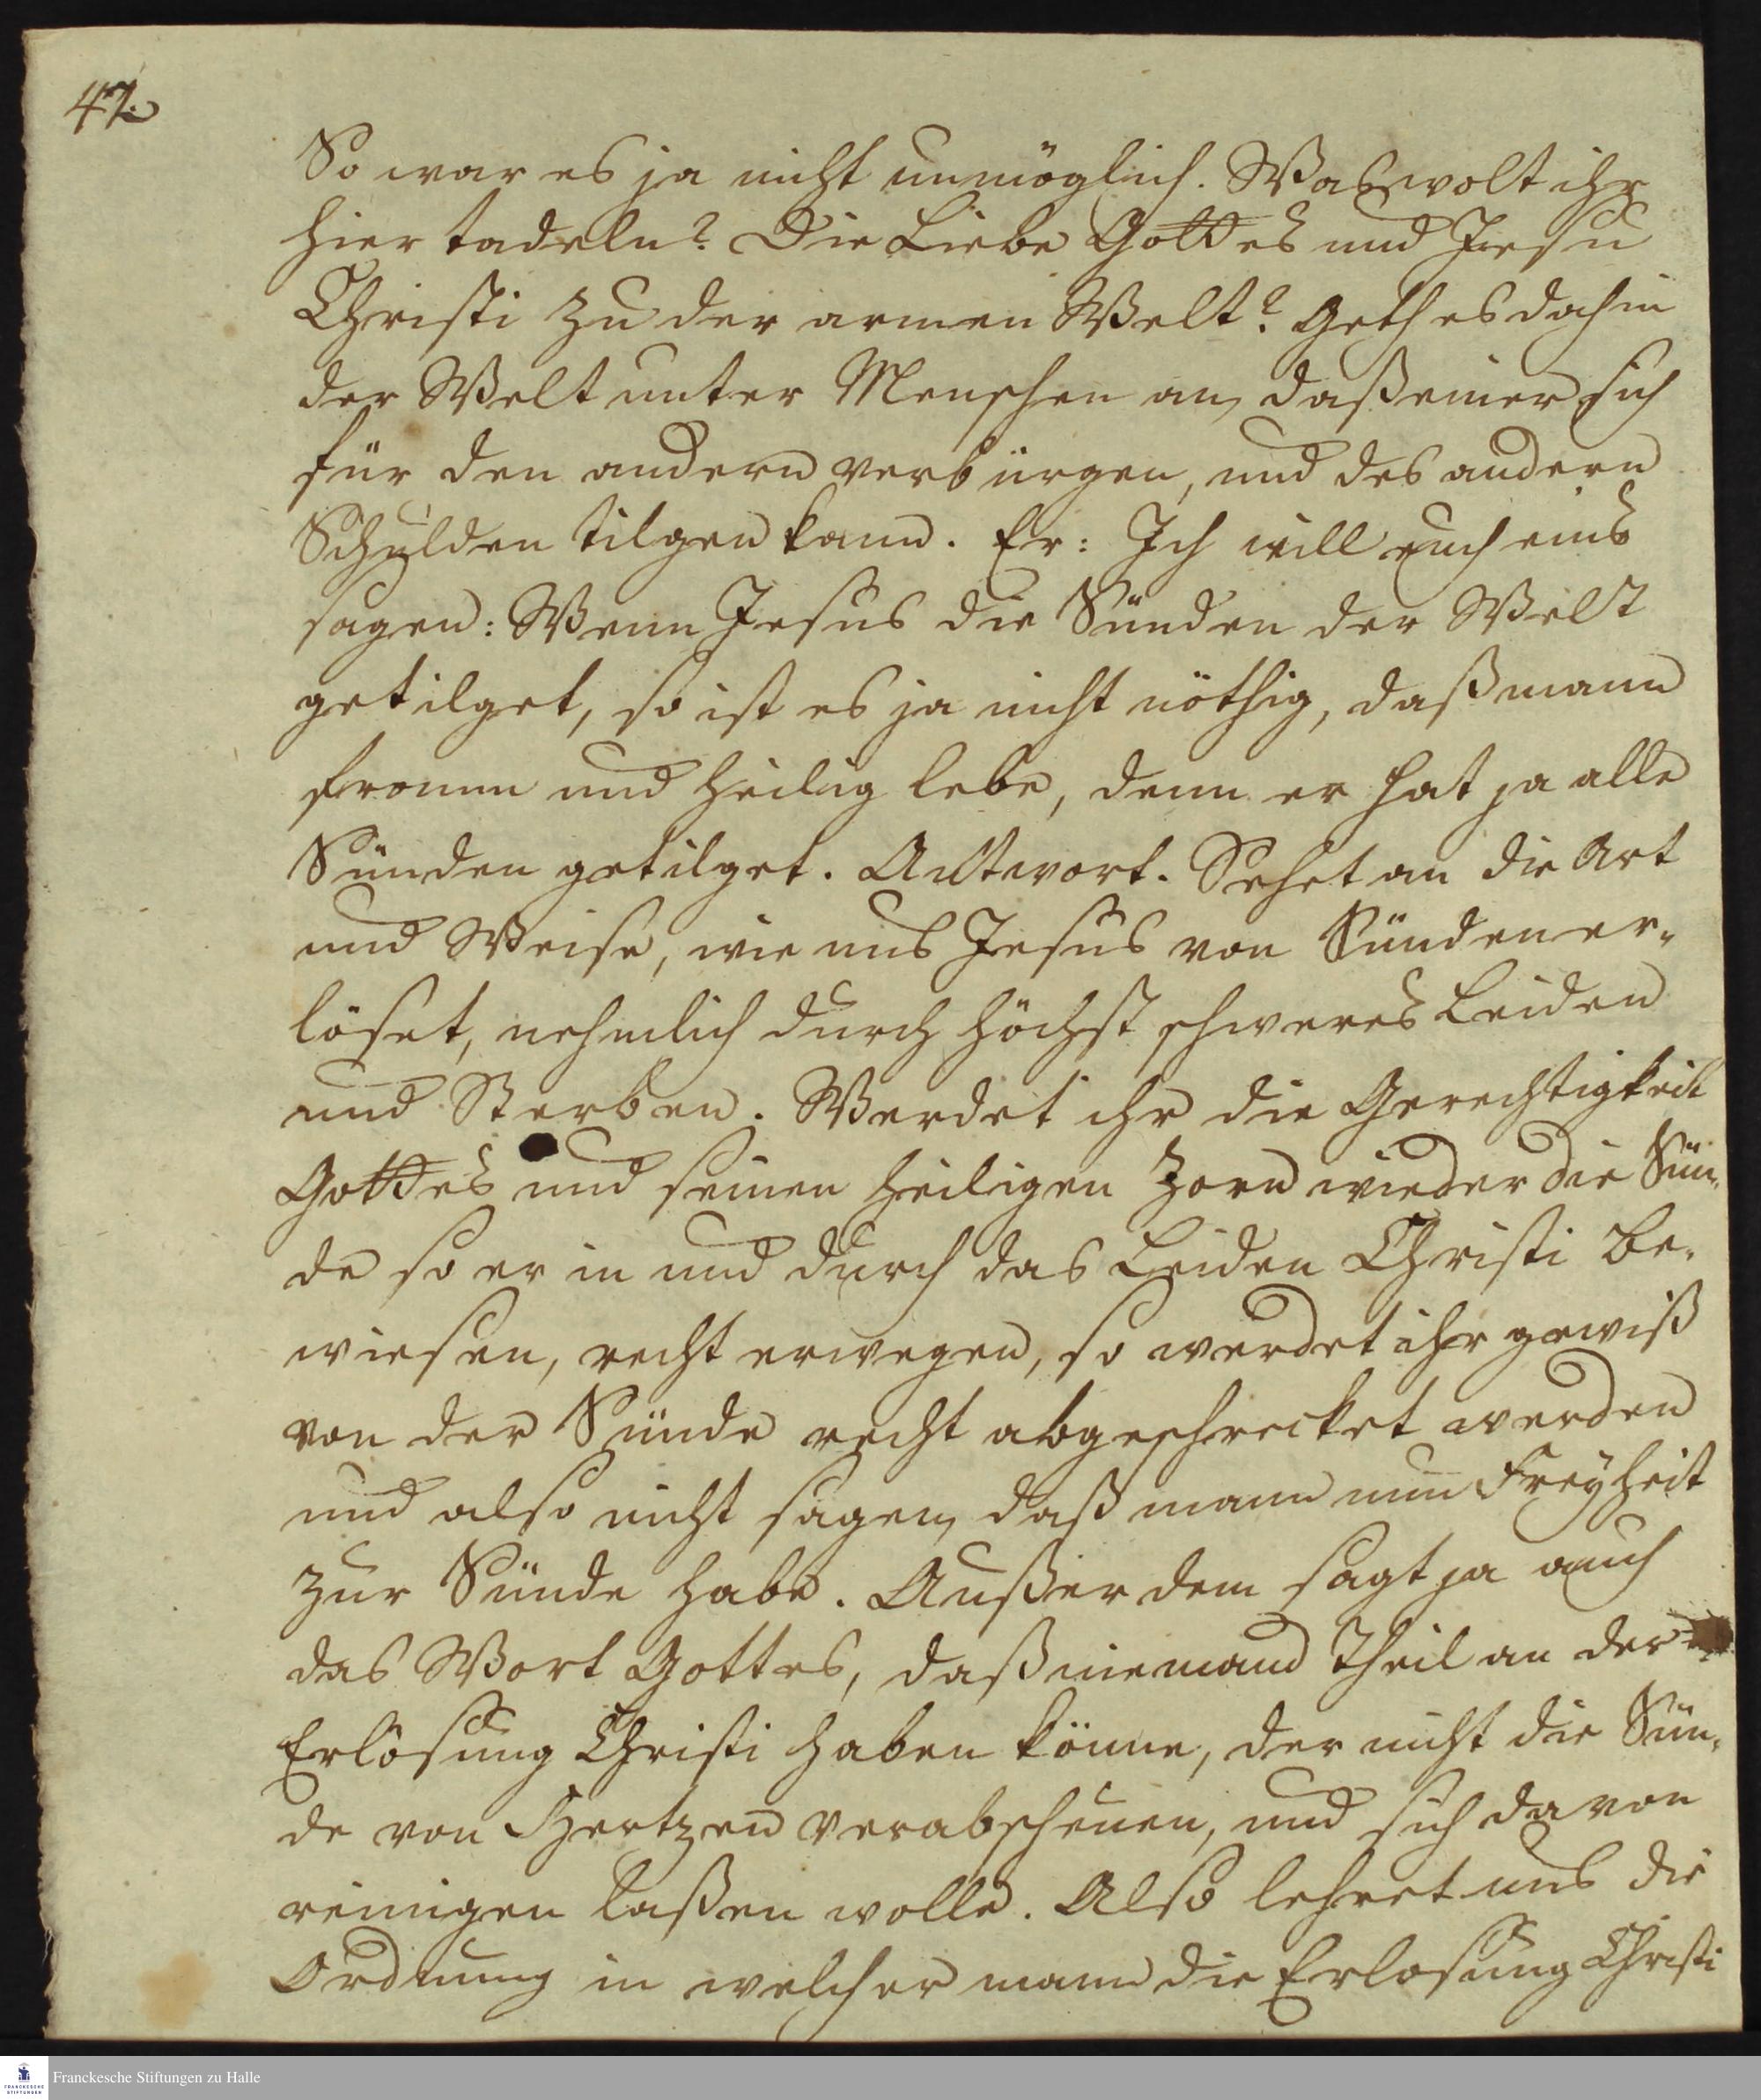 47.
So war es ja nicht unmöglich. Was wolt ihr
hier tadeln? Die Liebe Gottes und Jesu
Christi zu der armen Welt? Geth es doch in
der Welt unter Menschen an, daß einer sich
für den andern verbürgen, und des andern
Schulden tilgen kann. Er: Ich will euch eins
sagen: Wenn Jesus die Sünden der Welt
getilget, so ist es ja nicht nöthig, daß mann
fromm und heilig lebe, denn er hat ja alle
Sünden getilget. Antwort. Sehet an die Art
und Weise, wie uns Jesus von Sünden er-
löset, nehmlich durch höchst schweres Leiden
und Sterben. Werdet ihr die Gerechtigkeit
Gottes und seinen heiligen Zorn wieder die Sün-
de so er in und durch das Leiden Christi be-
wiesen, recht erwegen, so werdet ihr gewiß
von der Sünde recht abgeschrecket werden
und also nicht sagen, daß mann nun Freyheit
zur Sünde habe. Außer dem sagt ja auch
das Wort Gottes, daß niemand Theil an der
Erlösung Christi haben könne, der nicht die Sün-
de von Hertzen verabscheuen, und sich davon
reinigen laßen wolle. Also lehret uns die
Ordnung in welcher mann die Erlosung Christi
FRANCKESCHE STIFTUNGEN
Franckesche Stiftungen zu Halle